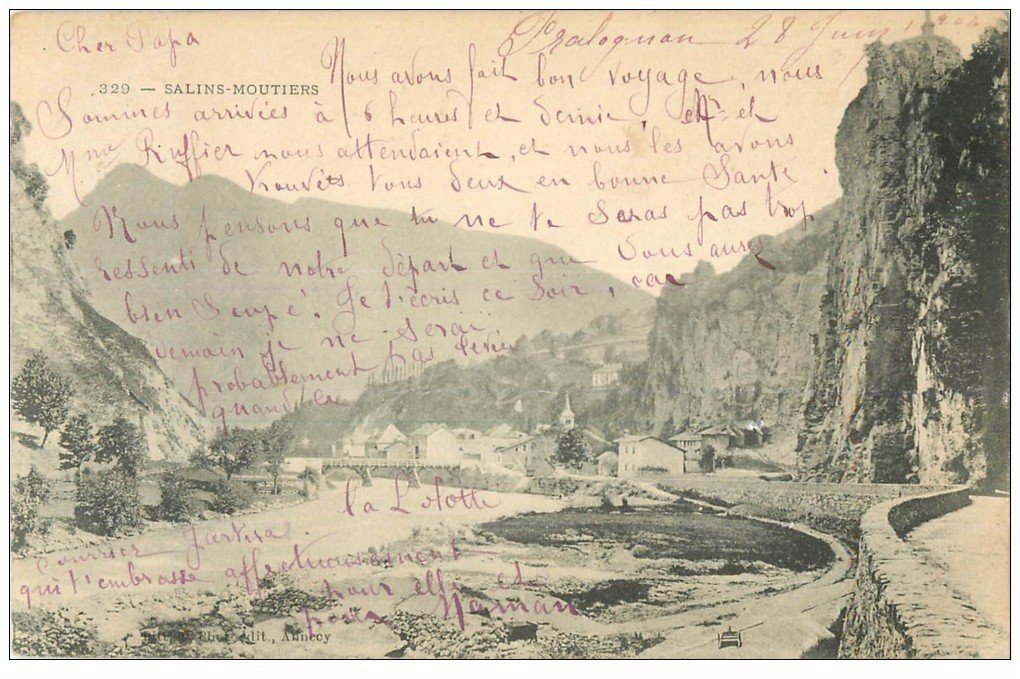 Pralognan 28 Juin 1904
Cher Papa
Nous avons fait bon voyage, nous
329 — SALINS-MOUTIERS
Sommes arrivées à 6 heures et demie, Mr et
Mme Ruffier nous attendaient, et nous les avons
trouvés tous deux en bonne Santé.
Nous pensons que tu ne te Seras pas trop
ressenti de notre départ et que vous aurez
bien Soupé. Je t'écris ce Soir, car
demain je ne Serai
probablement pas levée
quand le
courrier partira.
la Lolotte
qui t'embrasse affectueusement
pour elle et
pour Maman
édit., Annecy